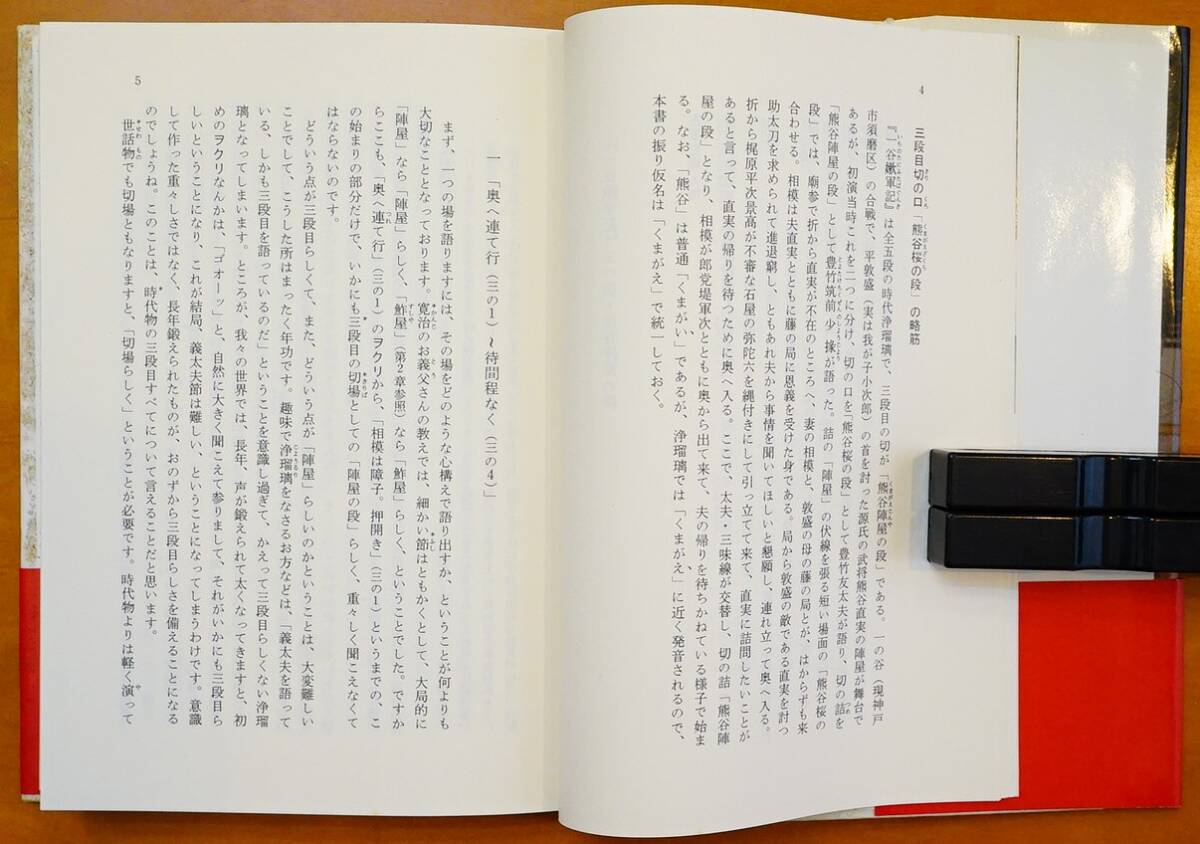 4
三段目切の口「熊谷桜の段」の略筋
『一谷嫩軍記』は全五段の時代浄瑠璃で、三段目の切が「熊谷陣屋の段」である。一の谷（現神戸
市須磨区）の合戦で、平敦盛（実は我が子小次郎）の首を討った源氏の武将熊谷直実の陣屋が舞台で
あるが、初演当時これを二つに分け、切の口を「熊谷桜の段」として豊竹友太夫が語り、切の詰を
「熊谷陣屋の段」として豊竹筑前少掾が語った。詰の「陣屋」の伏線を張る短い場面の「熊谷桜の
段」では、廟参で折から直実が不在のところへ、妻の相模と、敦盛の母の藤の局とが、はからずも来
合わせる。相模は夫直実とともに藤の局に恩義を受けた身である。局から敦盛の敵である直実を討つ
助太刀を求められて進退窮し、ともあれ夫から事情を聞いてほしいと懇願し、連れ立って奥へ入る。
折から梶原平次景高が不審な石屋の弥陀六を縄付きにして引っ立てて来て、直実に詰問したいことが
あると言って、直実の帰りを待つために奥へ入る。ここで、太夫・三味線が交替し、切の詰「熊谷陣
屋の段」となり、相模が郎党堤軍次とともに奥から出て来て、夫の帰りを待ちかねている様子で始ま
る。なお、「熊谷」は普通「くまがい」であるが、浄瑠璃では「くまがえ」に近く発音されるので、
本書の振り仮名は「くまがえ」で統一しておく。
5
一　「奥へ連て行（三の1）〜待間程なく（三の4）」
まず、一つの場を語りますには、その場をどのような心構えで語り出すか、ということが何よりも
大切なこととなっております。寛治のお義父さんの教えでは、細かい節はともかくとして、大局的に
「陣屋」なら「陣屋」らしく、「鮓屋」（第2章参照）なら「鮓屋」らしく、ということでした。ですか
らここも、「奥へ連て行」（三の1）のヲクリから、「相模は障子。押開き」（三の1）というまでの、こ
の始まりの部分だけで、いかにも三段目の切場としての「陣屋の段」らしく、重々しく聞こえなくて
はならないのです。
どういう点が三段目らしくて、また、どういう点が「陣屋」らしいのかということは、大変難しい
ことでして、こうした所はまったく年功です。趣味で浄瑠璃をなさるお方などは、「義太夫を語って
いる、しかも三段目を語っているのだ」ということを意識し過ぎて、かえって三段目らしくない浄瑠
璃となってしまいます。ところが、我々の世界では、長年、声が鍛えられて太くなってきますと、初
めのヲクリなんかは、「ゴオーッ」と、自然に大きく聞こえて参りまして、それがいかにも三段目ら
しいということになり、これが結局、義太夫節は難しい、ということになってしまうわけです。意識
して作った重々しさではなく、長年鍛えられたものが、おのずから三段目らしさを備えることになる
のでしょうね。このことは、時代物の三段目すべてについて言えることだと思います。
世話物でも切場ともなりますと、「切場らしく」ということが必要です。時代物よりは軽く演って